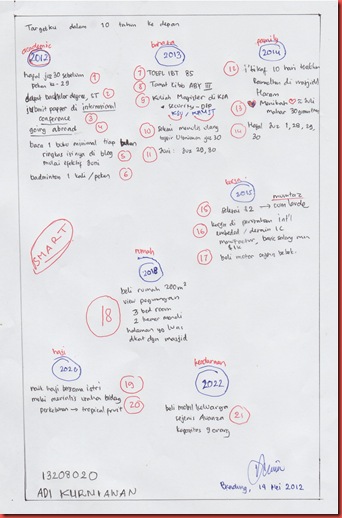 Targetku dalam 10 tahun ke depan
academic
2012
hapal juz 30 sebelum
1
dapat bachelor degree, ST
2
submit paper di international
conference
3
going abroad
4
baca 1 buku minimal tiap bulan
ringkas isinya di blog
5
mulai efektif Juni
badminton 1 kali / pekan
6
2013
7
TOEFL IBT 85
8
Tamat Kitab ABY III
9
Kuliah Magister di KSA
security - DPP
KSU / KAUST
10
Selesai menulis ulang
tafsir Utsaimin juz 30
11
Juz 29, 30
2014
12
i'tikaf 10 hari terakhir
Ramadhan di masjidil
Haram
13
Menikah
14
Hapal Juz 1, 28, 29,
30
kerja
2015
mumtaz
15
selesai S2
cum laude
16
kerja di perusahaan int'l
embedded / desain IC
17
beli motor
SMART
rumah
2018
18
beli rumah 200 m²
view pegunungan
3 bed room
2 kamar mandi
halaman yg luas
dekat dgn masjid
haji
2020
naik haji bersama istri
19
mulai merintis usaha bidang
20
perkebunan → tropical fruit
kendaraan
2022
beli mobil keluarga
21
sejenis Avanza
kapasitas 9 orang
13208020
ADI KURNIAWAN
Bandung, 19 Mei 2012